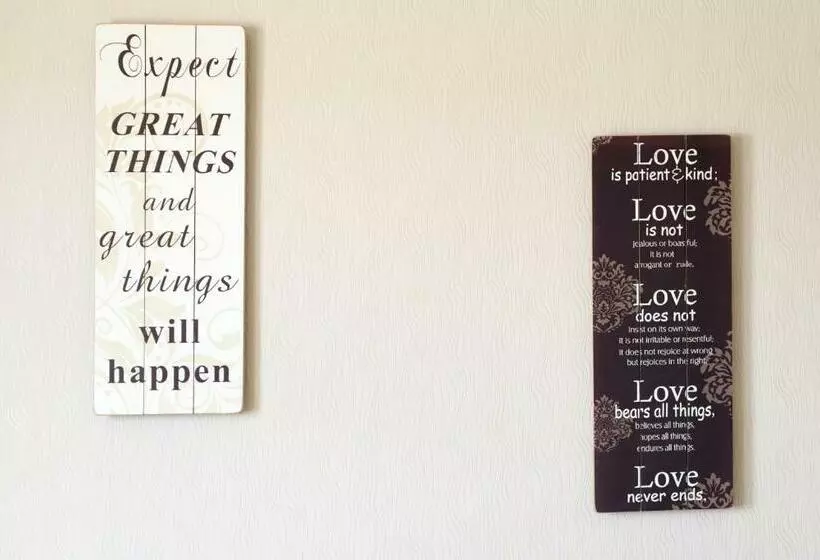 Expect
GREAT
THINGS
and
great
things
will
happen
Love
is patient & kind;
Love
is not
jealous or boastful;
it is not
arrogant or rude.
Love
does not
insist on its own way;
it is not irritable or resentful;
it does not rejoice at wrong
but rejoices in the right.
Love
bears all things,
believes all things,
hopes all things,
endures all things.
Love
never ends.